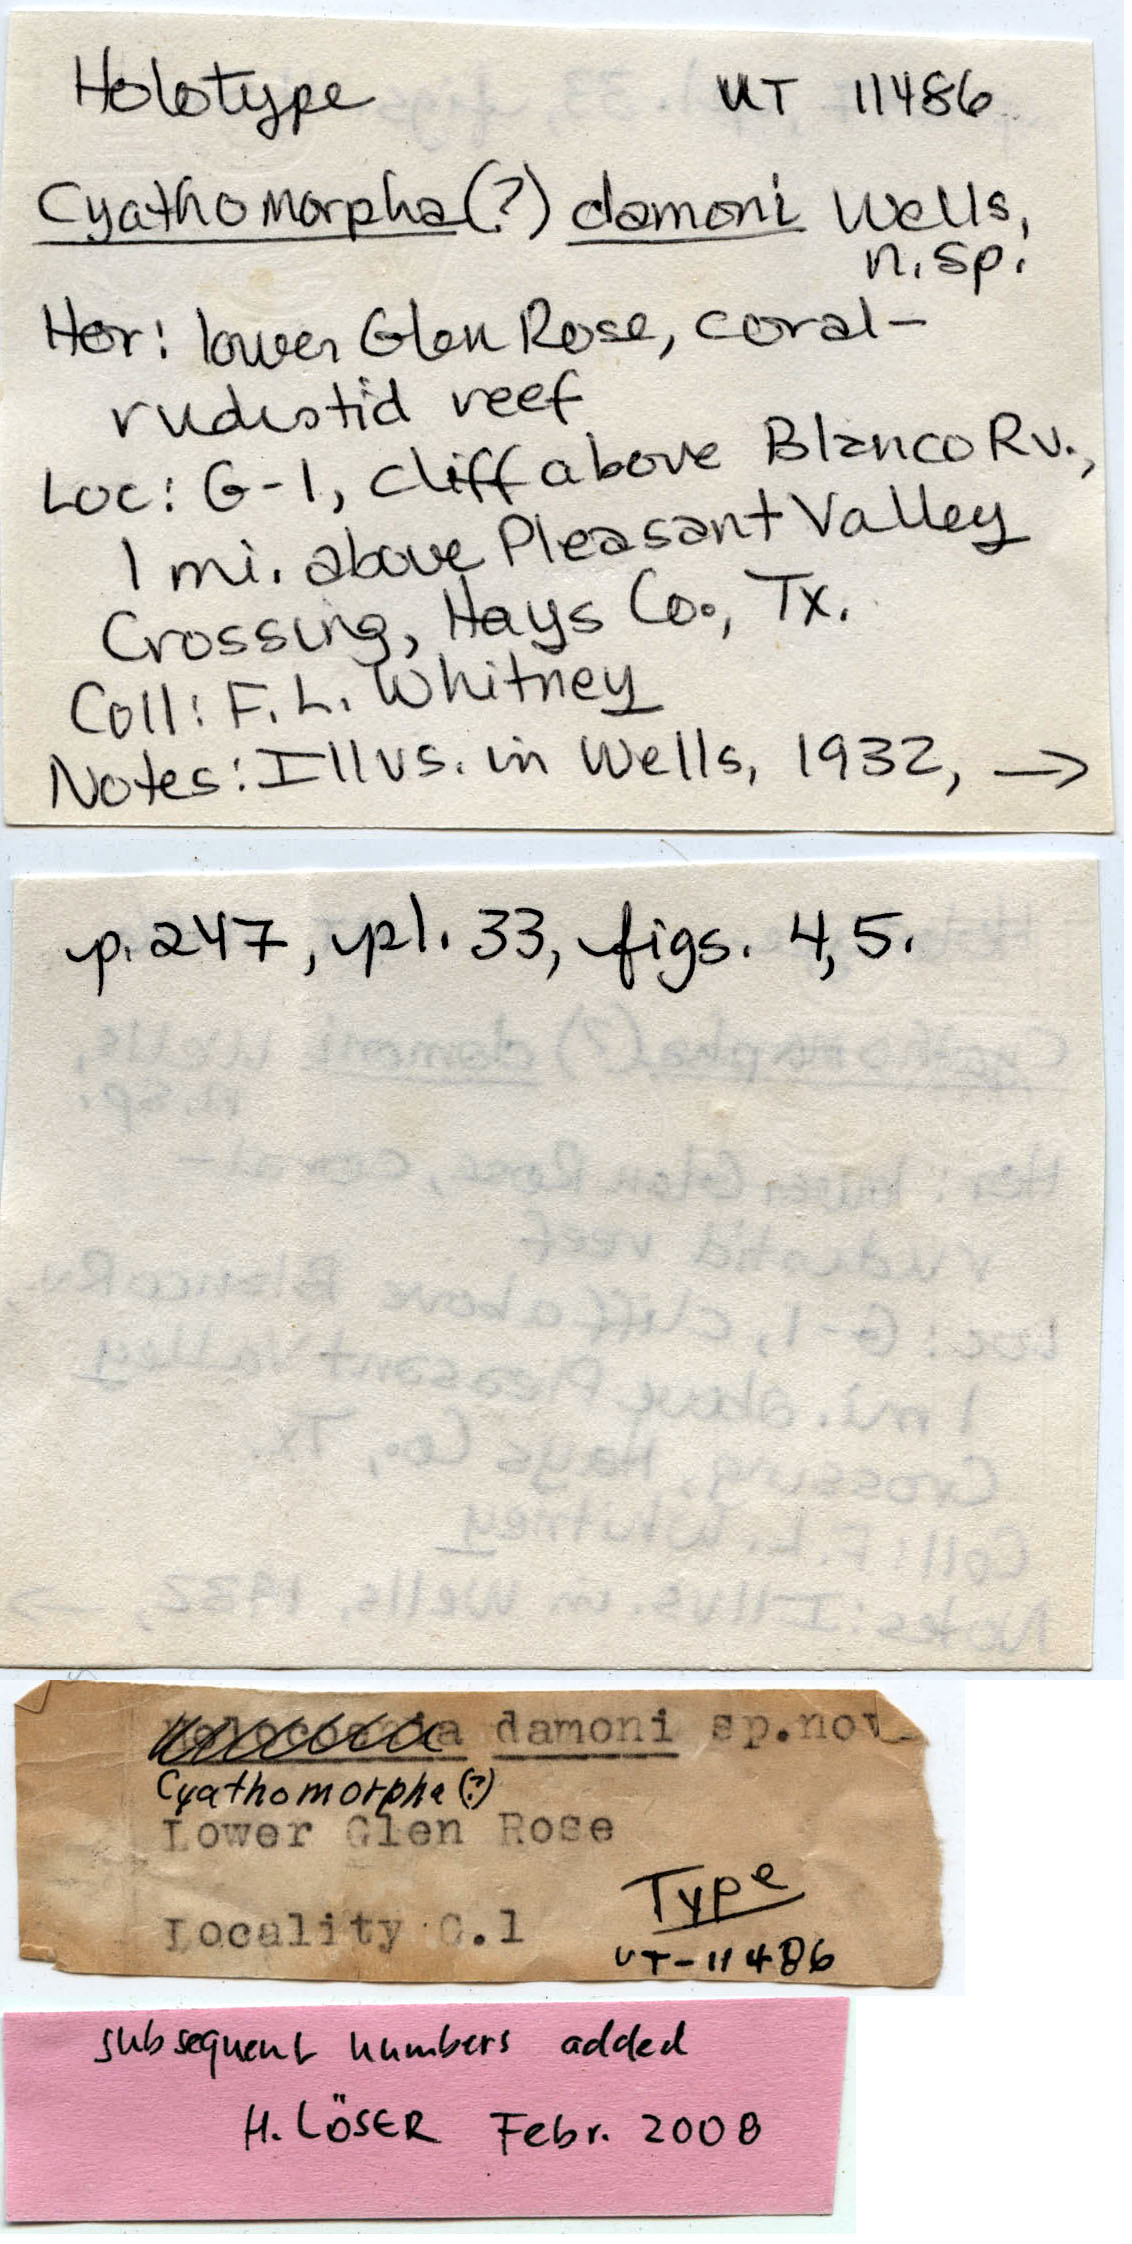 Holotype UT 11486
Cyathomorpha(?) damoni Wells,
n. sp.
Hor: lower Glen Rose, coral-
rudistid reef
Loc: G-1, cliff above Blanco Rv.,
1 mi. above Pleasant Valley
Crossing, Hays Co., Tx.
Coll: F. L. Whitney
Notes: Illus. in Wells, 1932, →
p. 247, pl. 33, figs. 4, 5.
damoni sp.nov.
Cyathomorpha (?)
Lower Glen Rose
Type
Locality G.1
UT-11486
subsequent numbers added
H. LÖSER Febr. 2008